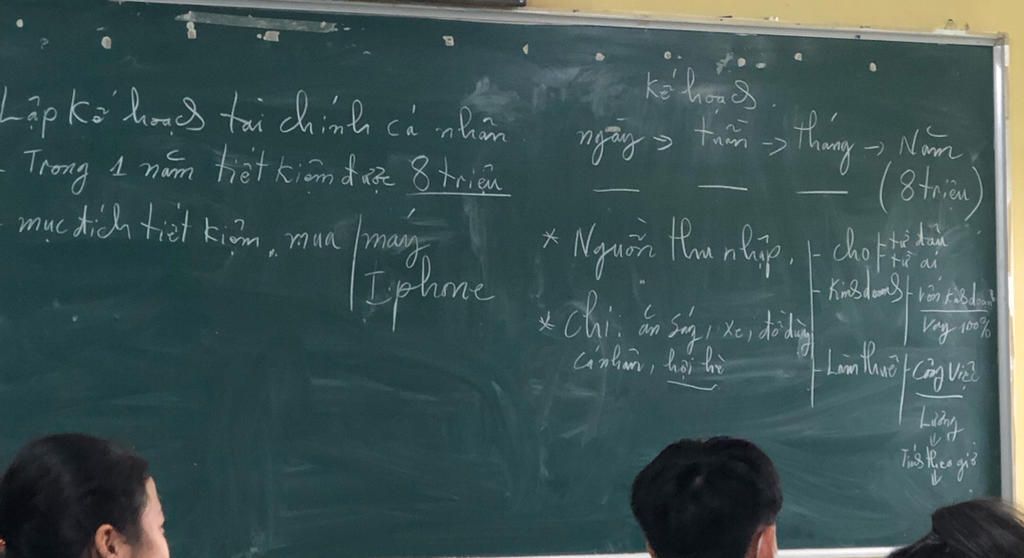 Lập kế hoạch tài chính cá nhân
- Trong 1 năm tiết kiệm được 8 triệu
- mục đích tiết kiệm, mua máy
Iphone
Kế hoạch.
ngày → tuần → tháng → Năm
(8 triệu)
* Nguồn thu nhập.
- cho
từ đâu
từ ai
- Kinh doanh
vốn kinh doanh
vay 100%
- Làm thuê
Công việc
Lương
Tính theo giờ
* Chi: ăn sáng, xe, đồ dùng
cá nhân, hội hè